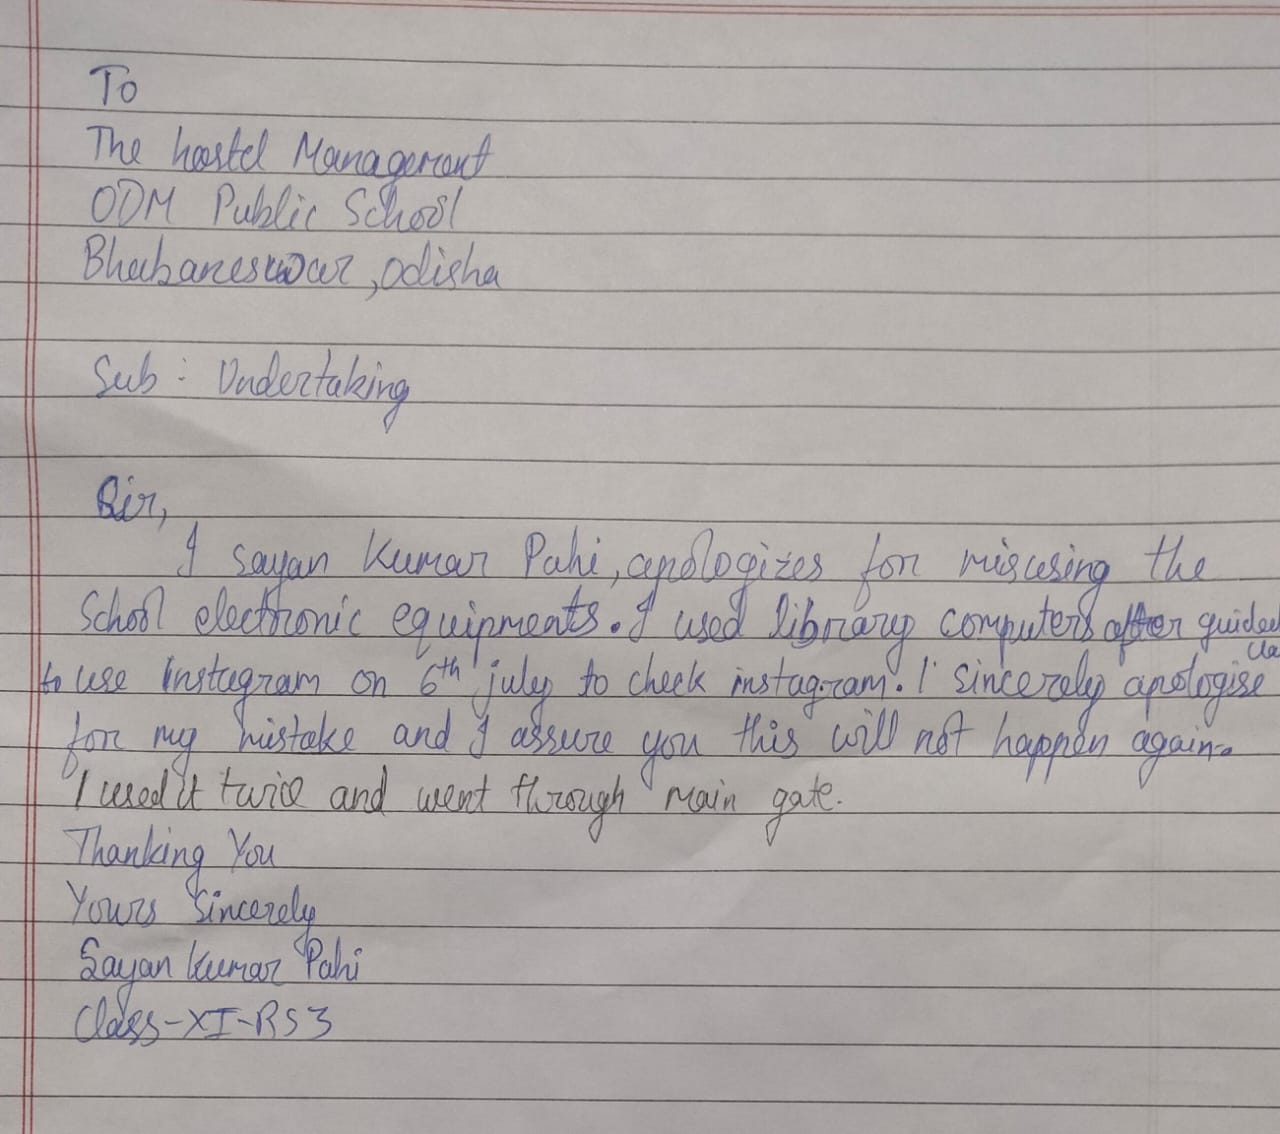 To
The hostel Management
ODM Public School
Bhubaneswar, odisha
Sub : Undertaking
Sir,
I Sayan Kumar Pahi, apologizes for misusing the
School electronic equipments. I used library computers after guided
to use instagram on 6th july to check instagram. I sincerely apologise
for my mistake and I assure you this will not happen again.
I used it twice and went through main gate.
Thanking You
Yours Sincerely
Sayan Kumar Pahi
Class-XI-RS3